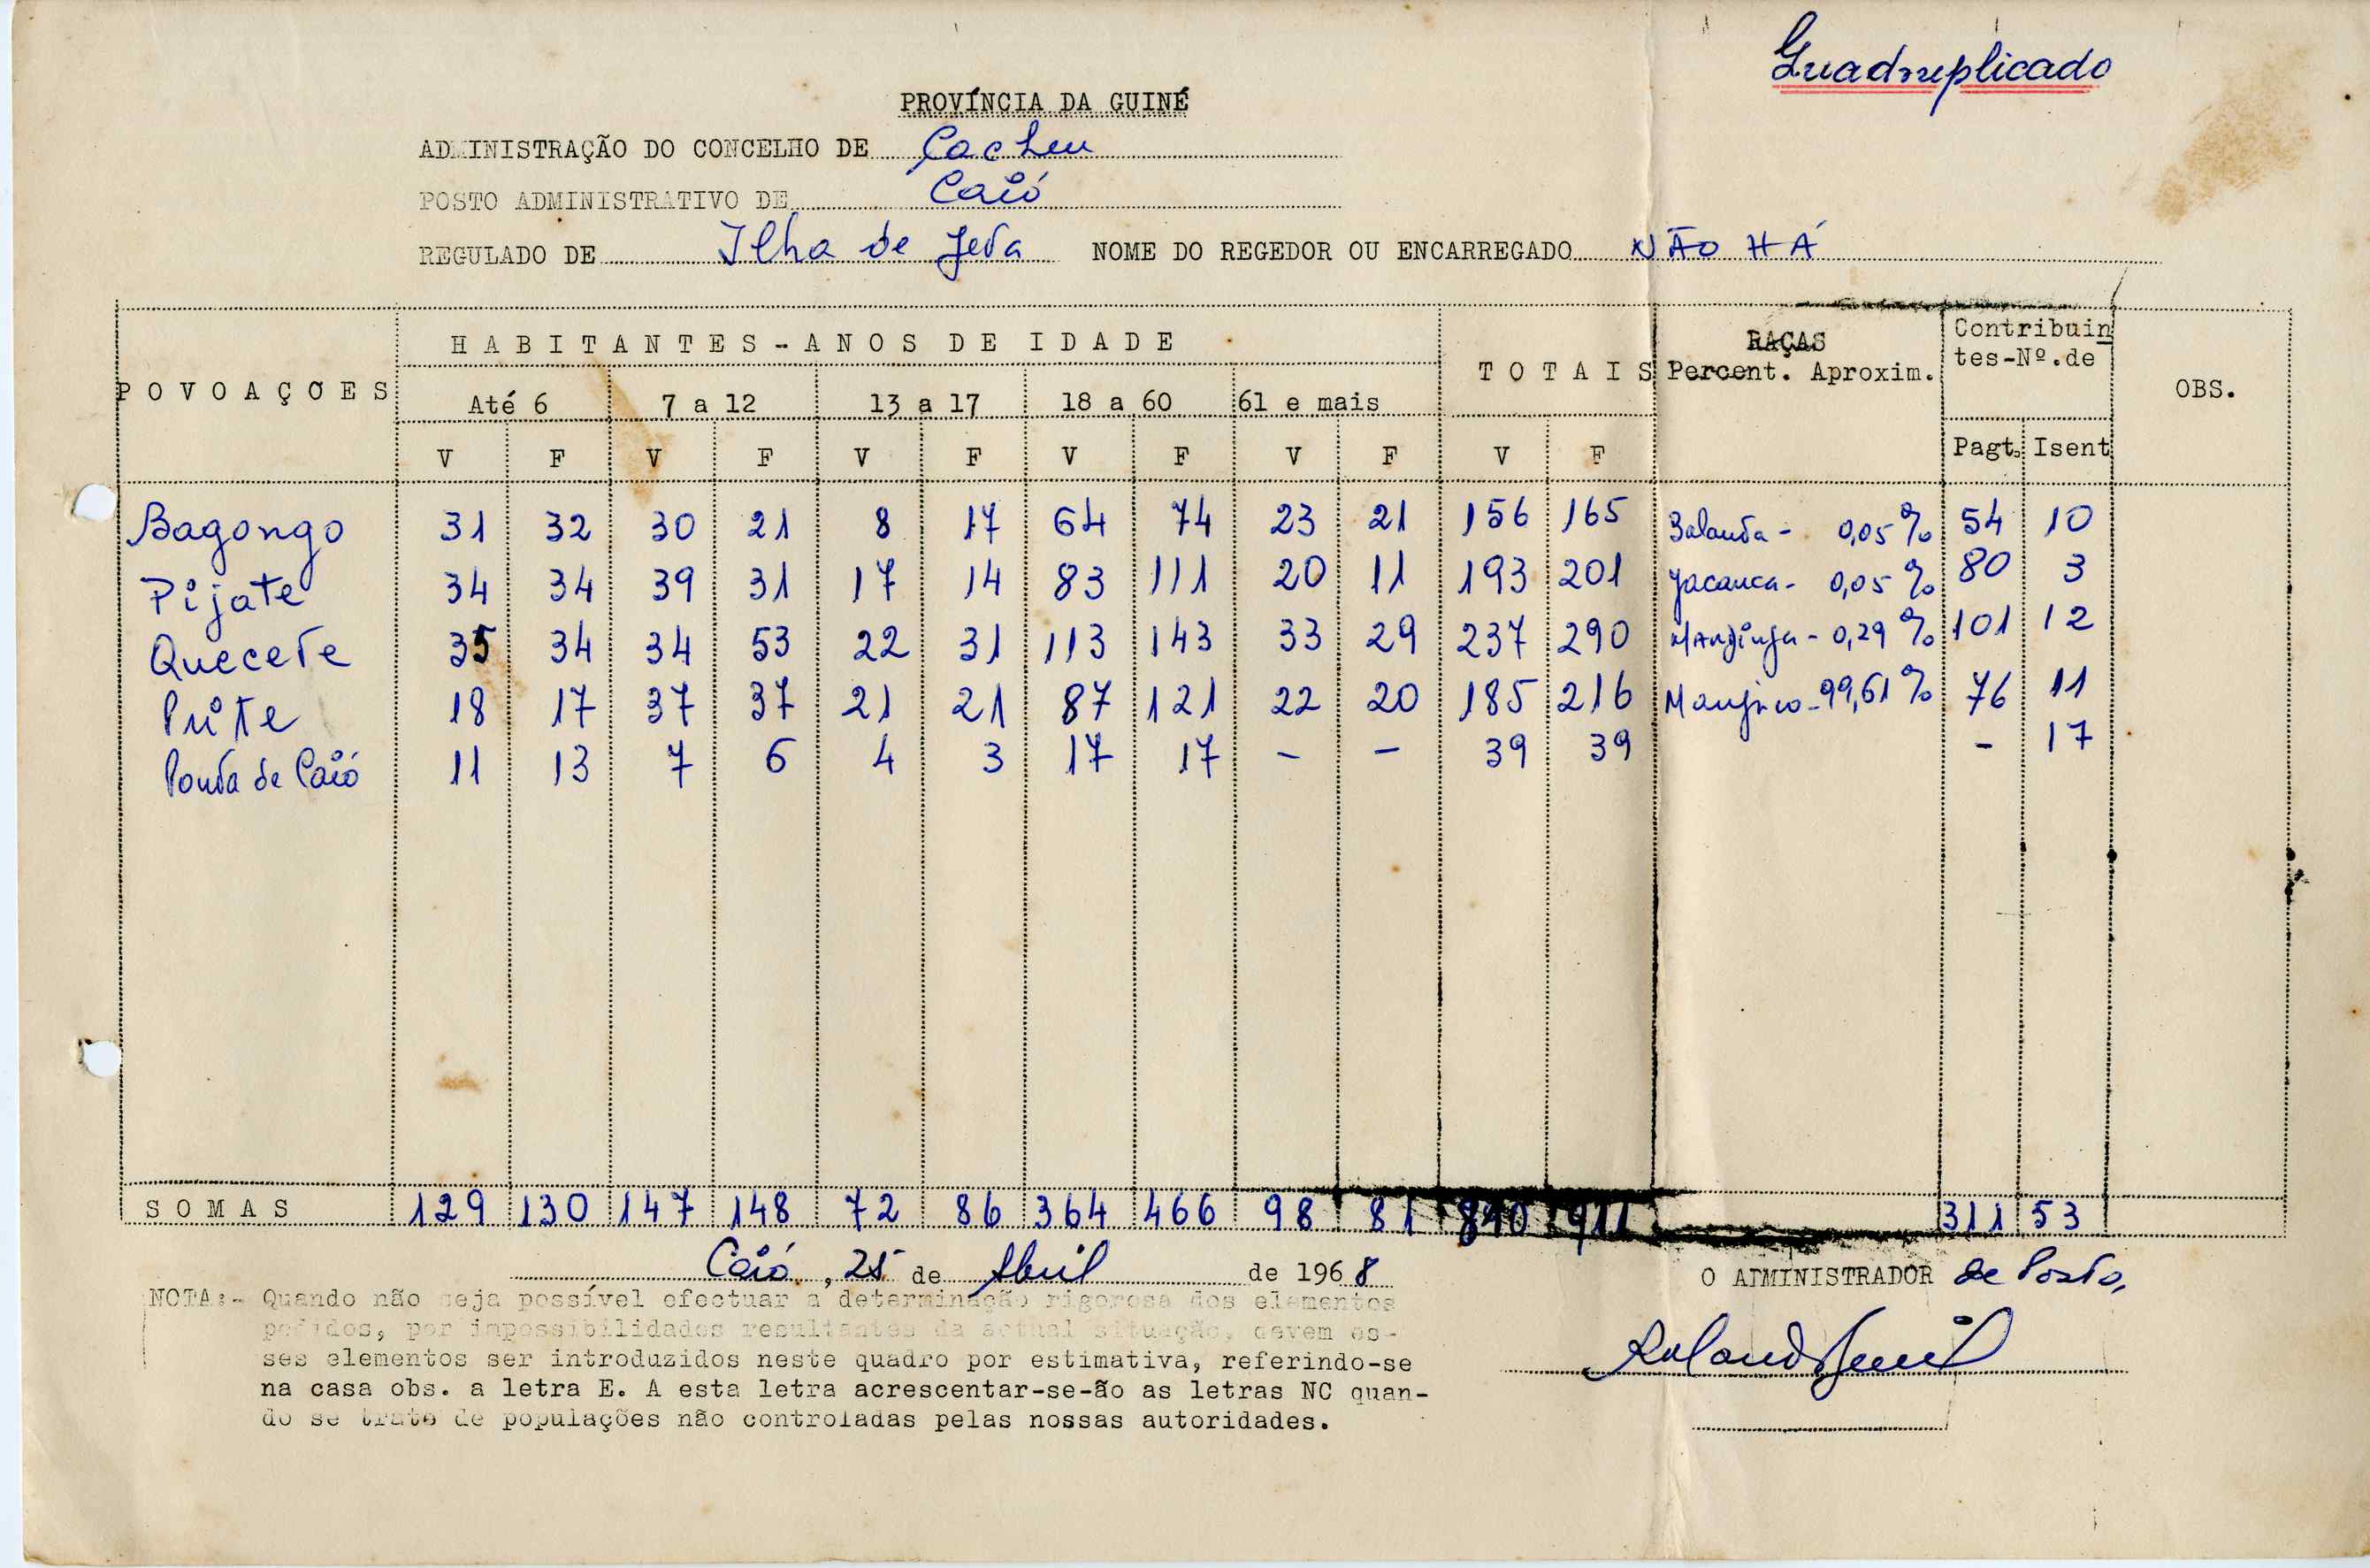 Quadruplicado
PROVÍNCIA DA GUINÉ
ADMINISTRAÇÃO DO CONCELHO DE Cacheu
POSTO ADMINISTRATIVO DE Caió
REGULADO DE Ilha de Jeta NOME DO REGEDOR OU ENCARREGADO NÃO HÁ
POVOAÇÕES HABITANTES-ANOS DE IDADE TOTAIS RAÇAS Percent. Aproxim. Contribuin tes-Nº.de OBS.
Até 6 7 a 12 13 a 17 18 a 60 61 e mais
V F V F V F V F V F V F Pagt. Isent
Bagongo 31 32 30 21 8 17 64 74 23 21 156 165 Balanta - 0,05 % 54 10
Pijate 34 34 39 31 17 14 83 111 20 11 193 201 Jacanca - 0,05 % 80 3
Quecete 35 34 34 53 22 31 113 143 33 29 237 290 Mandinga - 0,29 % 101 12
Prite 18 17 37 37 21 21 87 121 22 20 185 216 Manjaco - 99,61 % 76 11
Ponta de Caió 11 13 7 6 4 3 17 17 - - 39 39 - 17
SOMAS 129 130 147 148 72 86 364 466 98 81 810 911 311 53
Caió, 25 de Abril de 1968
O ADMINISTRADOR de Posto,
NOTA:- Quando não seja possível efectuar a determinação rigorosa dos elementos
pedidos, por impossibilidades resultantes da actual situação, devem es-
ses elementos ser introduzidos neste quadro por estimativa, referindo-se
na casa obs. a letra E. A esta letra acrescentar-se-ão as letras NC quan-
do se trate de populações não controladas pelas nossas autoridades.